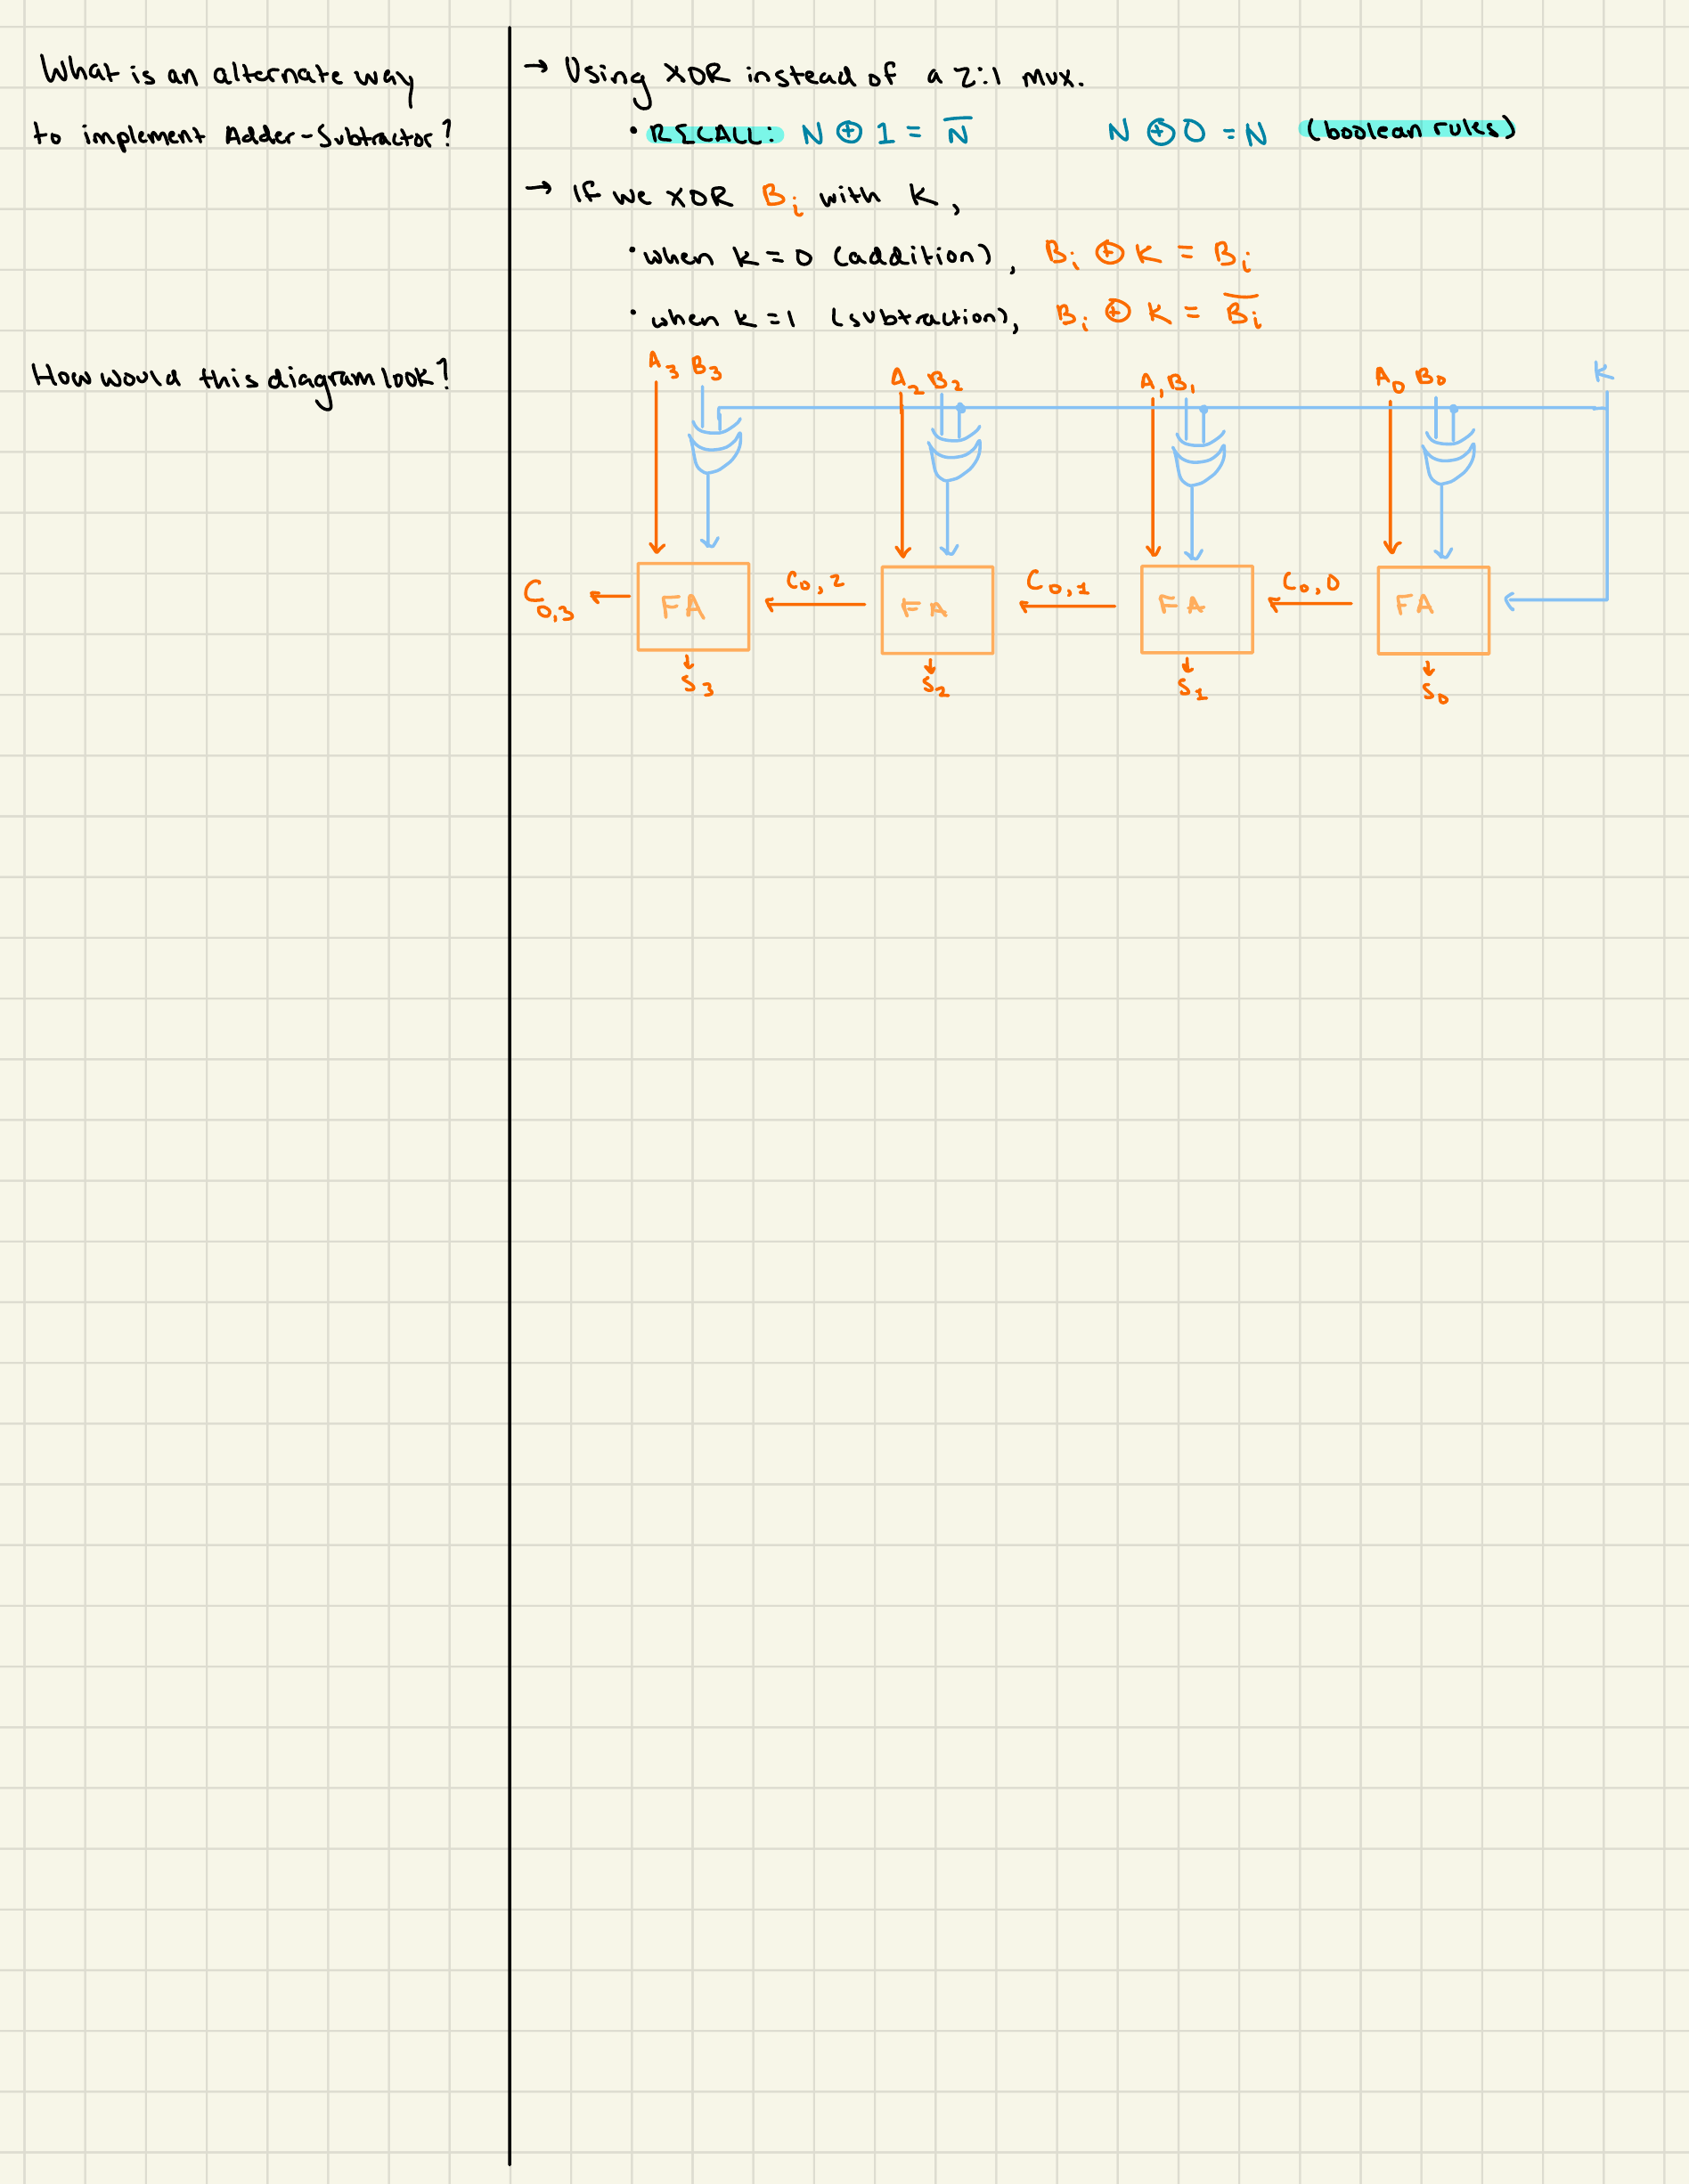 What is an alternate way
to implement Adder-Subtractor?
→ Using XOR instead of a 2:1 mux.
• RECALL: N ⊕ 1 = N̅ N ⊕ 0 = N (boolean rules)
→ If we XOR Bᵢ with K,
• when K = 0 (addition), Bᵢ ⊕ K = Bᵢ
• when K = 1 (subtraction), Bᵢ ⊕ K = B̅ᵢ
How would this diagram look?
A₃ B₃ A₂ B₂ A₁ B₁ A₀ B₀ K
C₀,₃ FA C₀,₂ FA C₀,₁ FA C₀,₀ FA
S₃ S₂ S₁ S₀